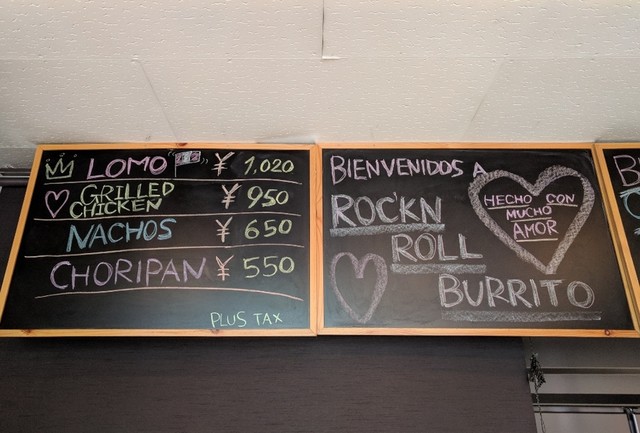 LOMO ¥ 1,020
GRILLED
CHICKEN ¥ 950
NACHOS ¥ 650
CHORIPAN ¥ 550
PLUS TAX
BIENVENIDOS A
ROC'KN
ROLL
BURRITO
HECHO CON
MUCHO
AMOR